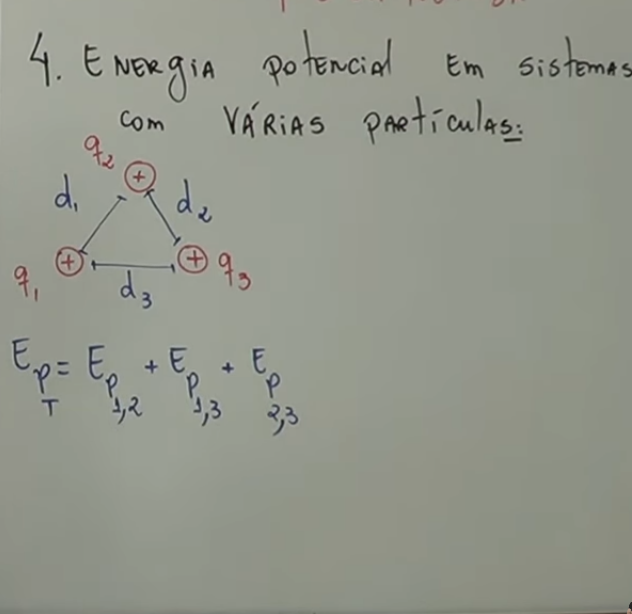 4. ENERGIA POTENCIAL EM SISTEMAS
COM VÁRIAS PARTÍCULAS:
q₂
+
d₁ d₂
+ + q₃
q₁ d₃
E_p_T = E_p_1,2 + E_p_1,3 + E_p_2,3